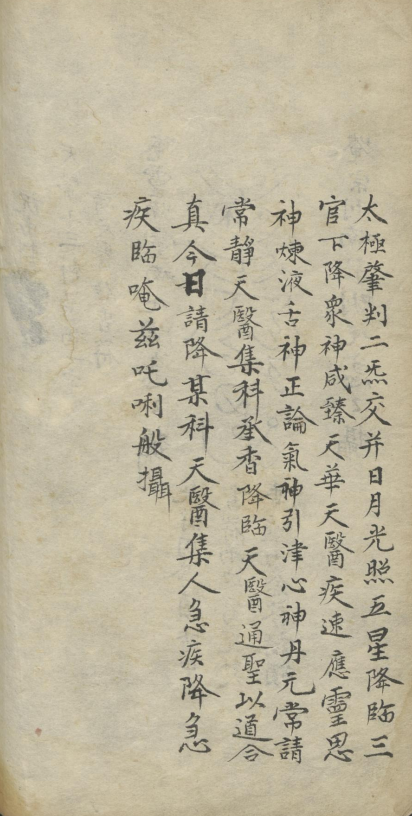 太極肇判二炁交并日月光照五星降臨三
官下降衆神咸臻天華天醫疾速應靈思
神煉液舌神正論氣神引津心神丹元常請
常靜天醫集科承香降臨天醫通聖以道合
真今日請降某科天醫集人急疾降急
疾臨唵茲吒唎般攝